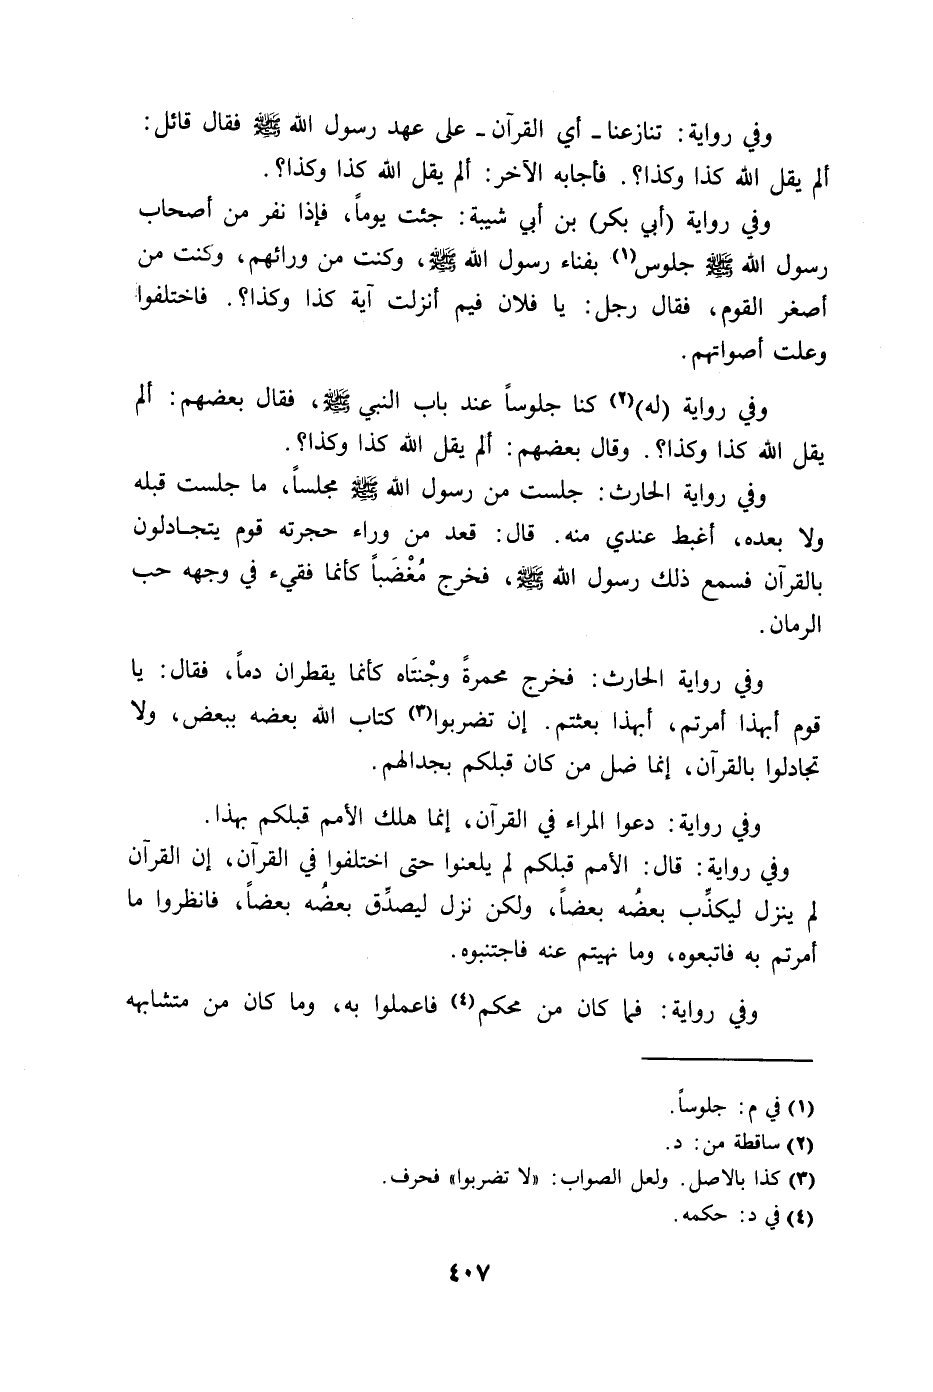 وفي رواية: تنازعنا ـ أي القرآن ـ على عهد رسول الله ﷺ فقال قائل:
ألم يقل الله كذا وكذا؟. فأجابه الآخر: ألم يقل الله كذا وكذا؟.
وفي رواية (أبي بكر) بن أبي شيبة: جئت يوماً، فإذا نفر من أصحاب
رسول الله ﷺ جلوس(١) بفناء رسول الله ﷺ، وكنت من ورائهم، وكنت من
أصغر القوم، فقال رجل: يا فلان فيم أنزلت آية كذا وكذا؟. فاختلفوا
وعلت أصواتهم.
وفي رواية (له)(٢) كنا جلوساً عند باب النبي ﷺ، فقال بعضهم: ألم
يقل الله كذا وكذا؟. وقال بعضهم: ألم يقل الله كذا وكذا؟.
وفي رواية الحارث: جلست من رسول الله ﷺ مجلساً، ما جلست قبله
ولا بعده، أغبط عندي منه. قال: قعد من وراء حجرته قوم يتجادلون
بالقرآن فسمع ذلك رسول الله ﷺ، فخرج مُغْضَباً كأنما فقيء في وجهه حب
الرمان.
وفي رواية الحارث: فخرج محمرةً وجْنتَاه كأنما يقطران دماً، فقال: يا
قوم أبهذا أمرتم، أبهذا بعثتم. إن تضربوا(٣) كتاب الله بعضه ببعض، ولا
تجادلوا بالقرآن، إنما ضل من كان قبلكم بجدالهم.
وفي رواية: دعوا المراء في القرآن، إنما هلك الأمم قبلكم بهذا.
وفي رواية: قال: الأمم قبلكم لم يلعنوا حتى اختلفوا في القرآن، إن القرآن
لم ينزل ليكذِّب بعضُه بعضاً، ولكن نزل ليصدِّق بعضُه بعضاً، فانظروا ما
أمرتم به فاتبعوه، وما نهيتم عنه فاجتنبوه.
وفي رواية: فما كان من محكم(٤) فاعملوا به، وما كان من متشابهه
(١) في م: جلوساً.
(٢) ساقطة من: د.
(٣) كذا بالاصل. ولعل الصواب: «لا تضربوا» فحرف.
(٤) في د: حكمه.
٤٠٧